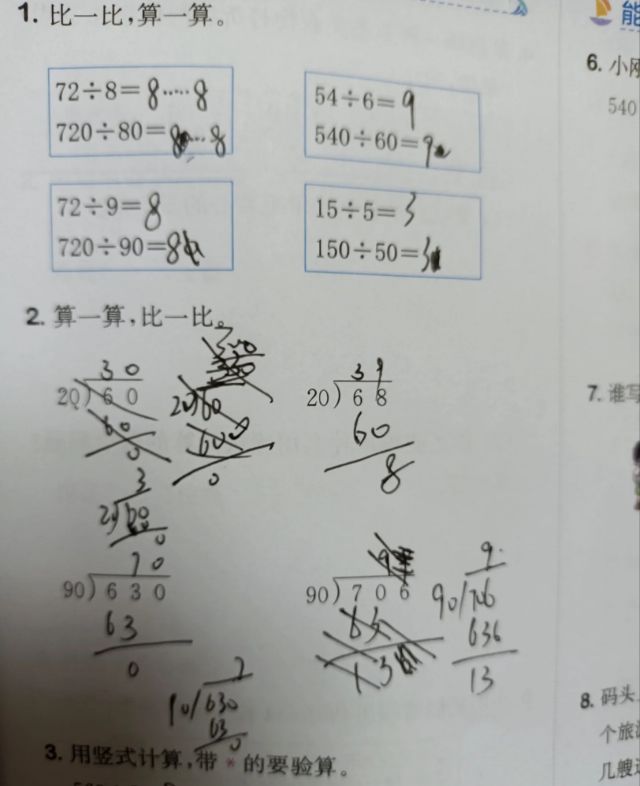 1. 比一比,算一算。
72÷8=8……8
720÷80=8…8
54÷6=9
540÷60=9
72÷9=8
720÷90=8
15÷5=3
150÷50=3
2. 算一算,比一比。
30
20)60
60
0
20)60
600
0
39
20)68
60
8
3
0
70
90)630
63
0
7
630
63
0
90)706
9
90/706
636
13
3. 用竖式计算,带*的要验算。
能
6. 小刚
540
7. 谁写
8. 码头
个旅游
几艘